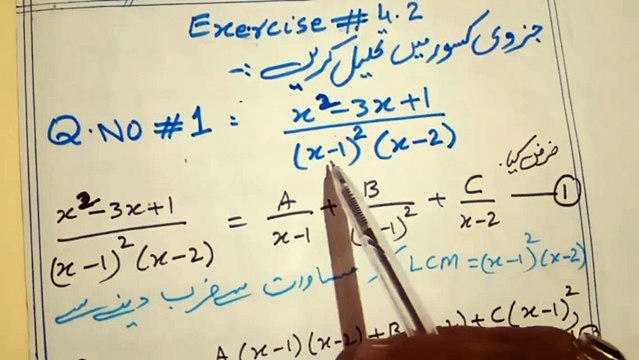 Exercise # 4.2
جزوی کسور میں تحلیل کریں :-
Q.NO #1 : x²-3x+1 / (x-1)² (x-2)
فرض کیا
x²-3x+1 / (x-1)² (x-2) = A / x-1 + B / (x-1)² + C / x-2 — ①
LCM = (x-1)² (x-2) مساوات سے ضرب دینے سے
A (x-1)(x-2) + B 2) + C(x-1)²